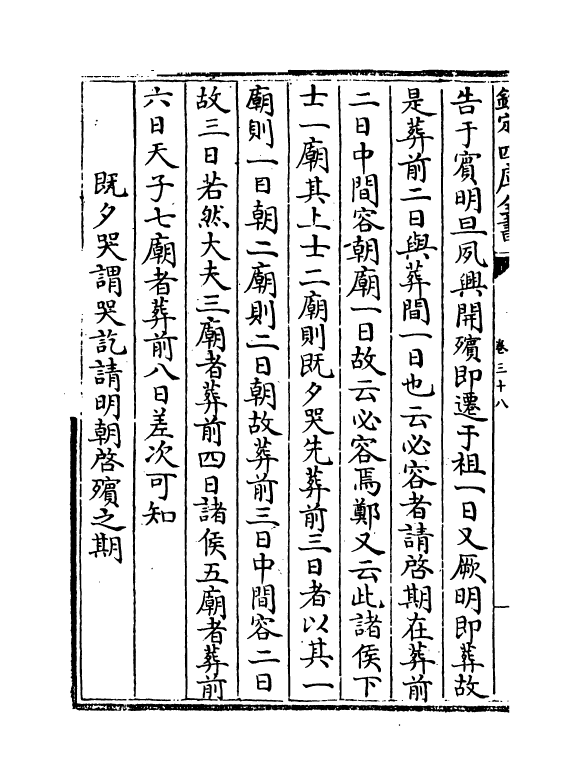 欽定四庫全書
卷三十八
告于賓明旦夙興開殯即遷于祖一日又厥明即葬故
是葬前二日與葬間一日也云必容者請啓期在葬前
二日中間容朝廟一日故云必容焉鄭又云此諸侯下
士一廟其上士二廟則既夕哭先葬前三日者以其一
廟則一日朝二廟則二日朝故葬前三日中間容二日
故三日若然大夫三廟者葬前四日諸侯五廟者葬前
六日天子七廟者葬前八日差次可知
既夕哭謂哭訖請明朝啓殯之期